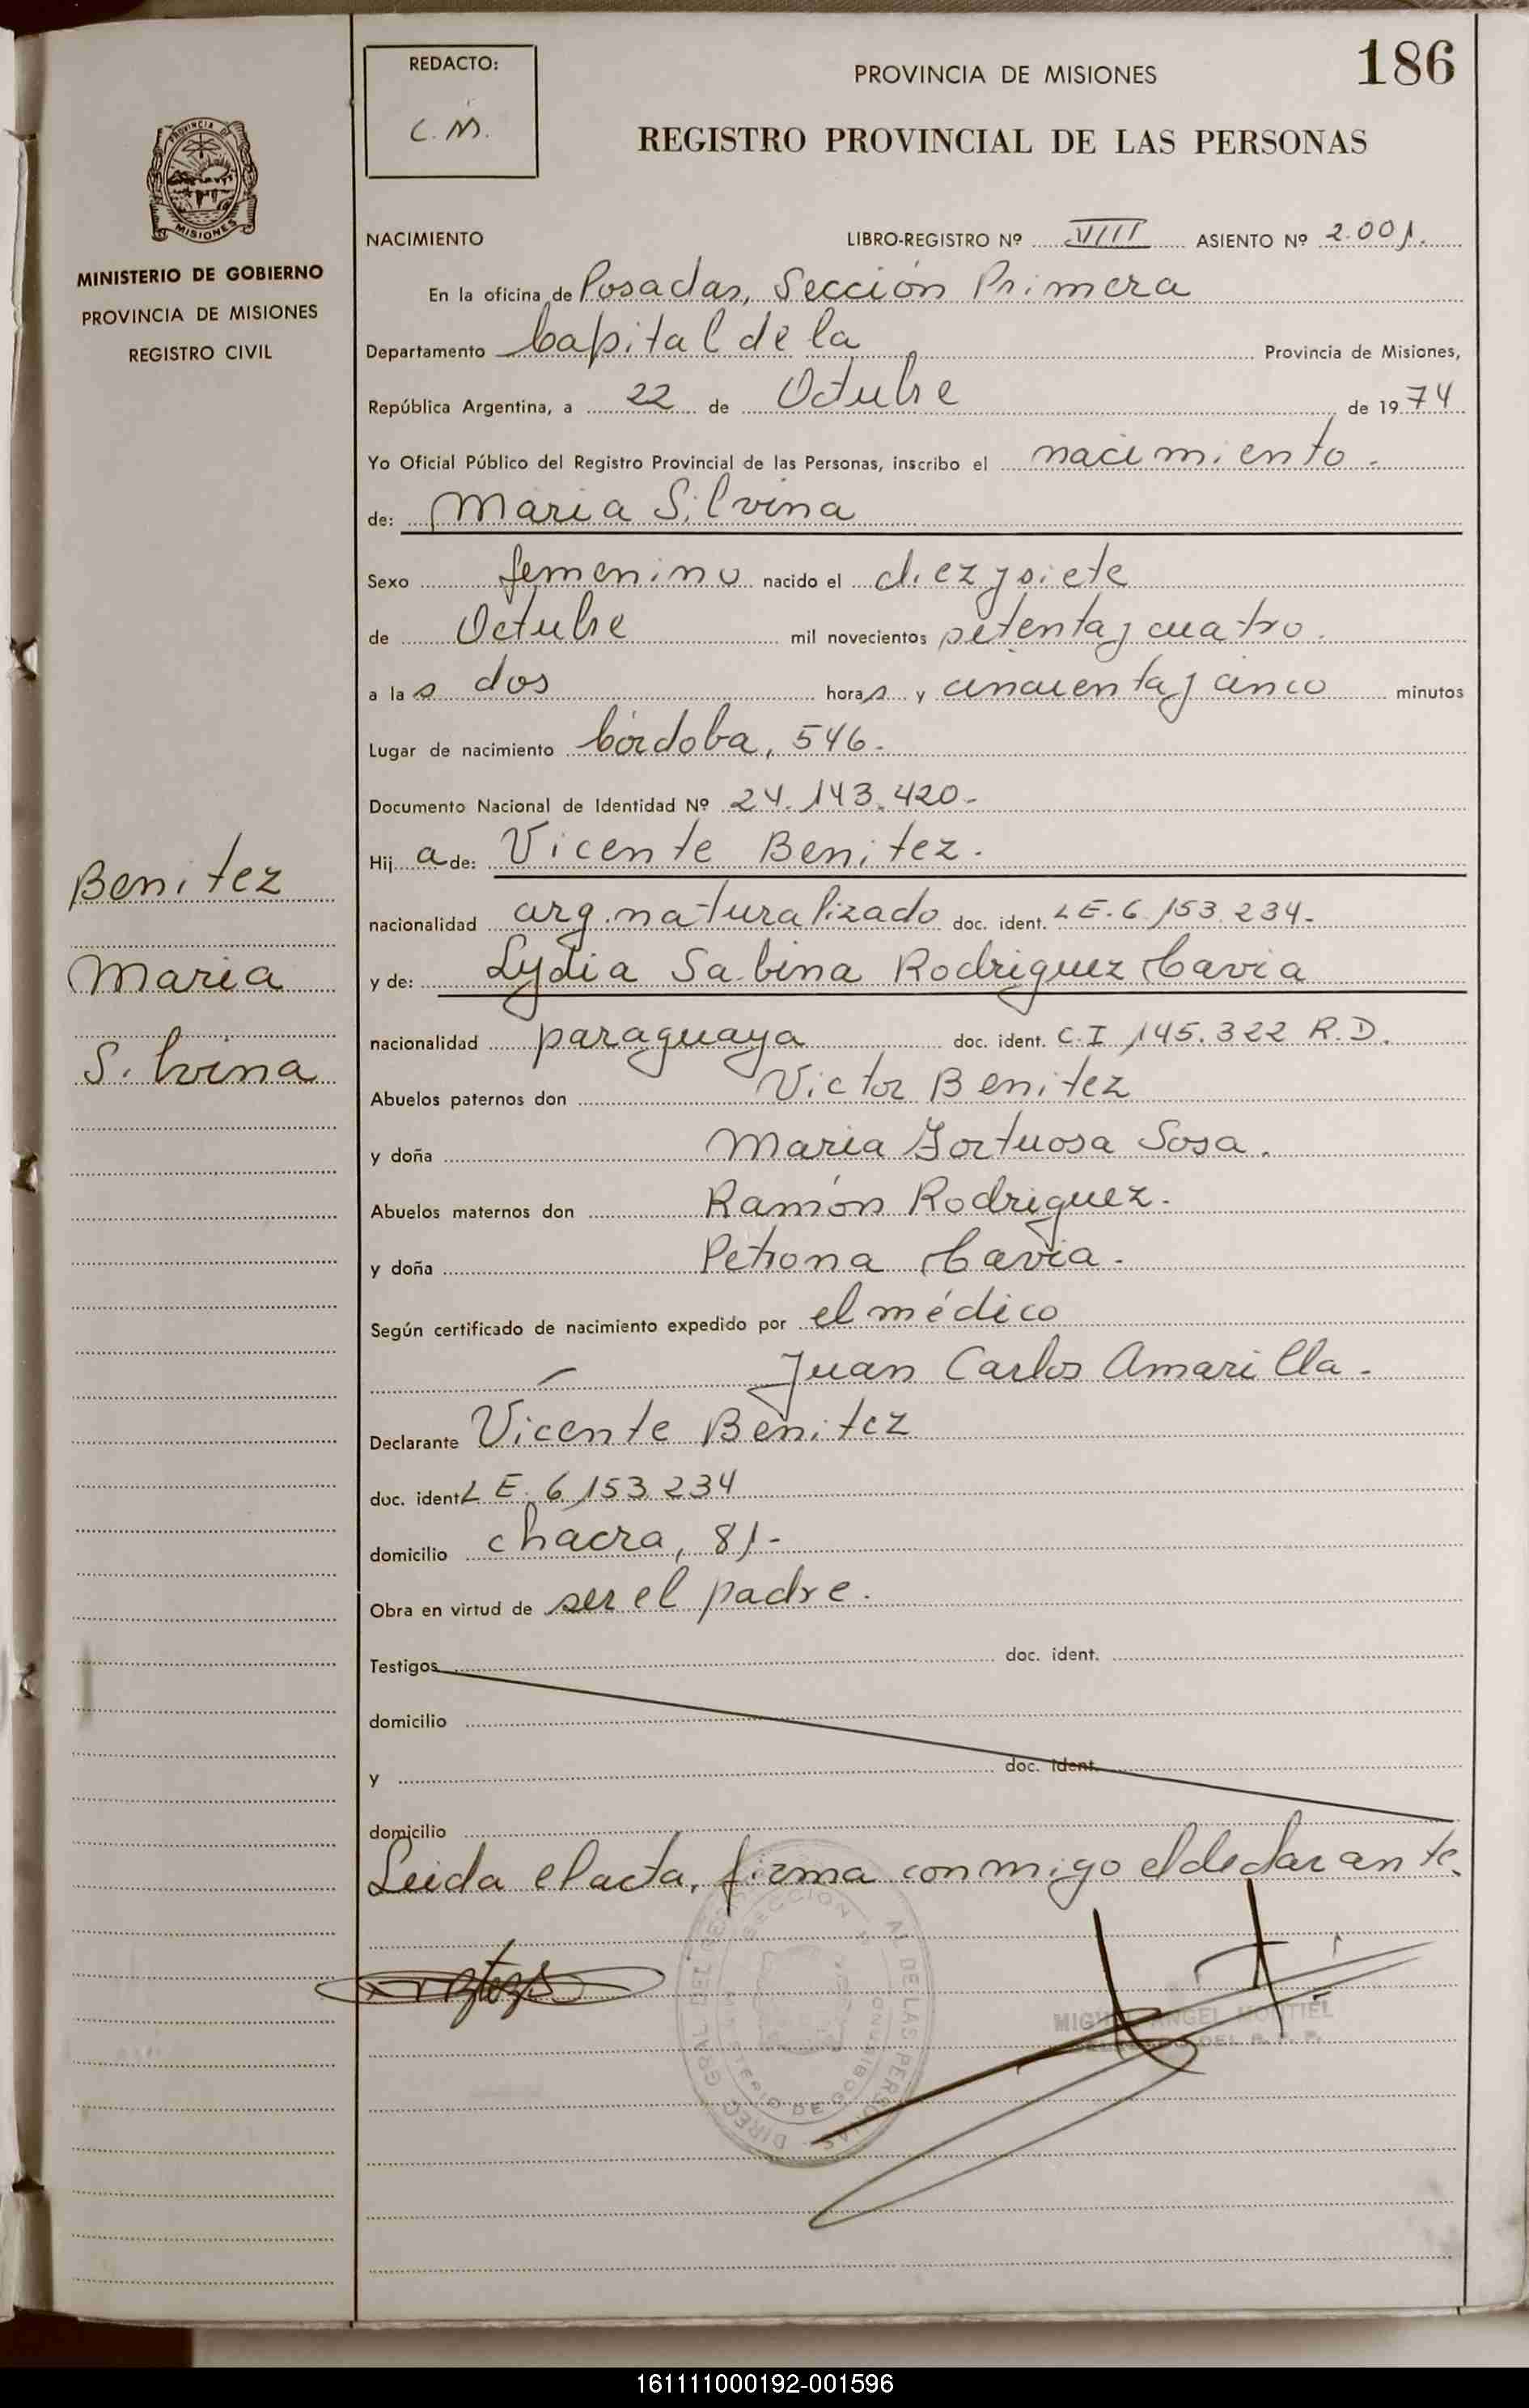 186
REDACTO:
C. M.
PROVINCIA DE MISIONES
REGISTRO PROVINCIAL DE LAS PERSONAS
PROVINCIA DE
MISIONES
MINISTERIO DE GOBIERNO
PROVINCIA DE MISIONES
REGISTRO CIVIL
NACIMIENTO LIBRO-REGISTRO Nº VIII ASIENTO Nº 2.001.
En la oficina de Posadas, Sección Primera
Departamento Capital de la Provincia de Misiones,
República Argentina, a 22 de Octubre de 1974
Yo Oficial Público del Registro Provincial de las Personas, inscribo el nacimiento.
de: Maria Silvina
Sexo femenino nacido el diez y siete
de Octubre mil novecientos setenta y cuatro.
a las dos horas y cincuenta y cinco minutos
Lugar de nacimiento Córdoba, 546.
Documento Nacional de Identidad Nº 24.143.420-
Hija de: Vicente Benitez.
nacionalidad arg. naturalizado doc. ident. LE. 6.153.234-
y de: Lydia Sabina Rodriguez Cavia
nacionalidad paraguaya doc. ident. C.I 145.322 R.D.
Abuelos paternos don Victor Benitez
y doña Maria Fortuosa Sosa.
Abuelos maternos don Ramón Rodriguez.
y doña Petrona Cavia.
Según certificado de nacimiento expedido por el médico
Juan Carlos Amarilla.
Declarante Vicente Benitez
doc. ident L E. 6.153.234
domicilio chacra, 81-
Obra en virtud de ser el padre.
Testigos doc. ident.
domicilio
y doc. ident.
domicilio
Leida el acta, firma conmigo el declarante.
Benitez
Maria
Silvina
MIGUEL ANGEL MONTIEL
161111000192-001596